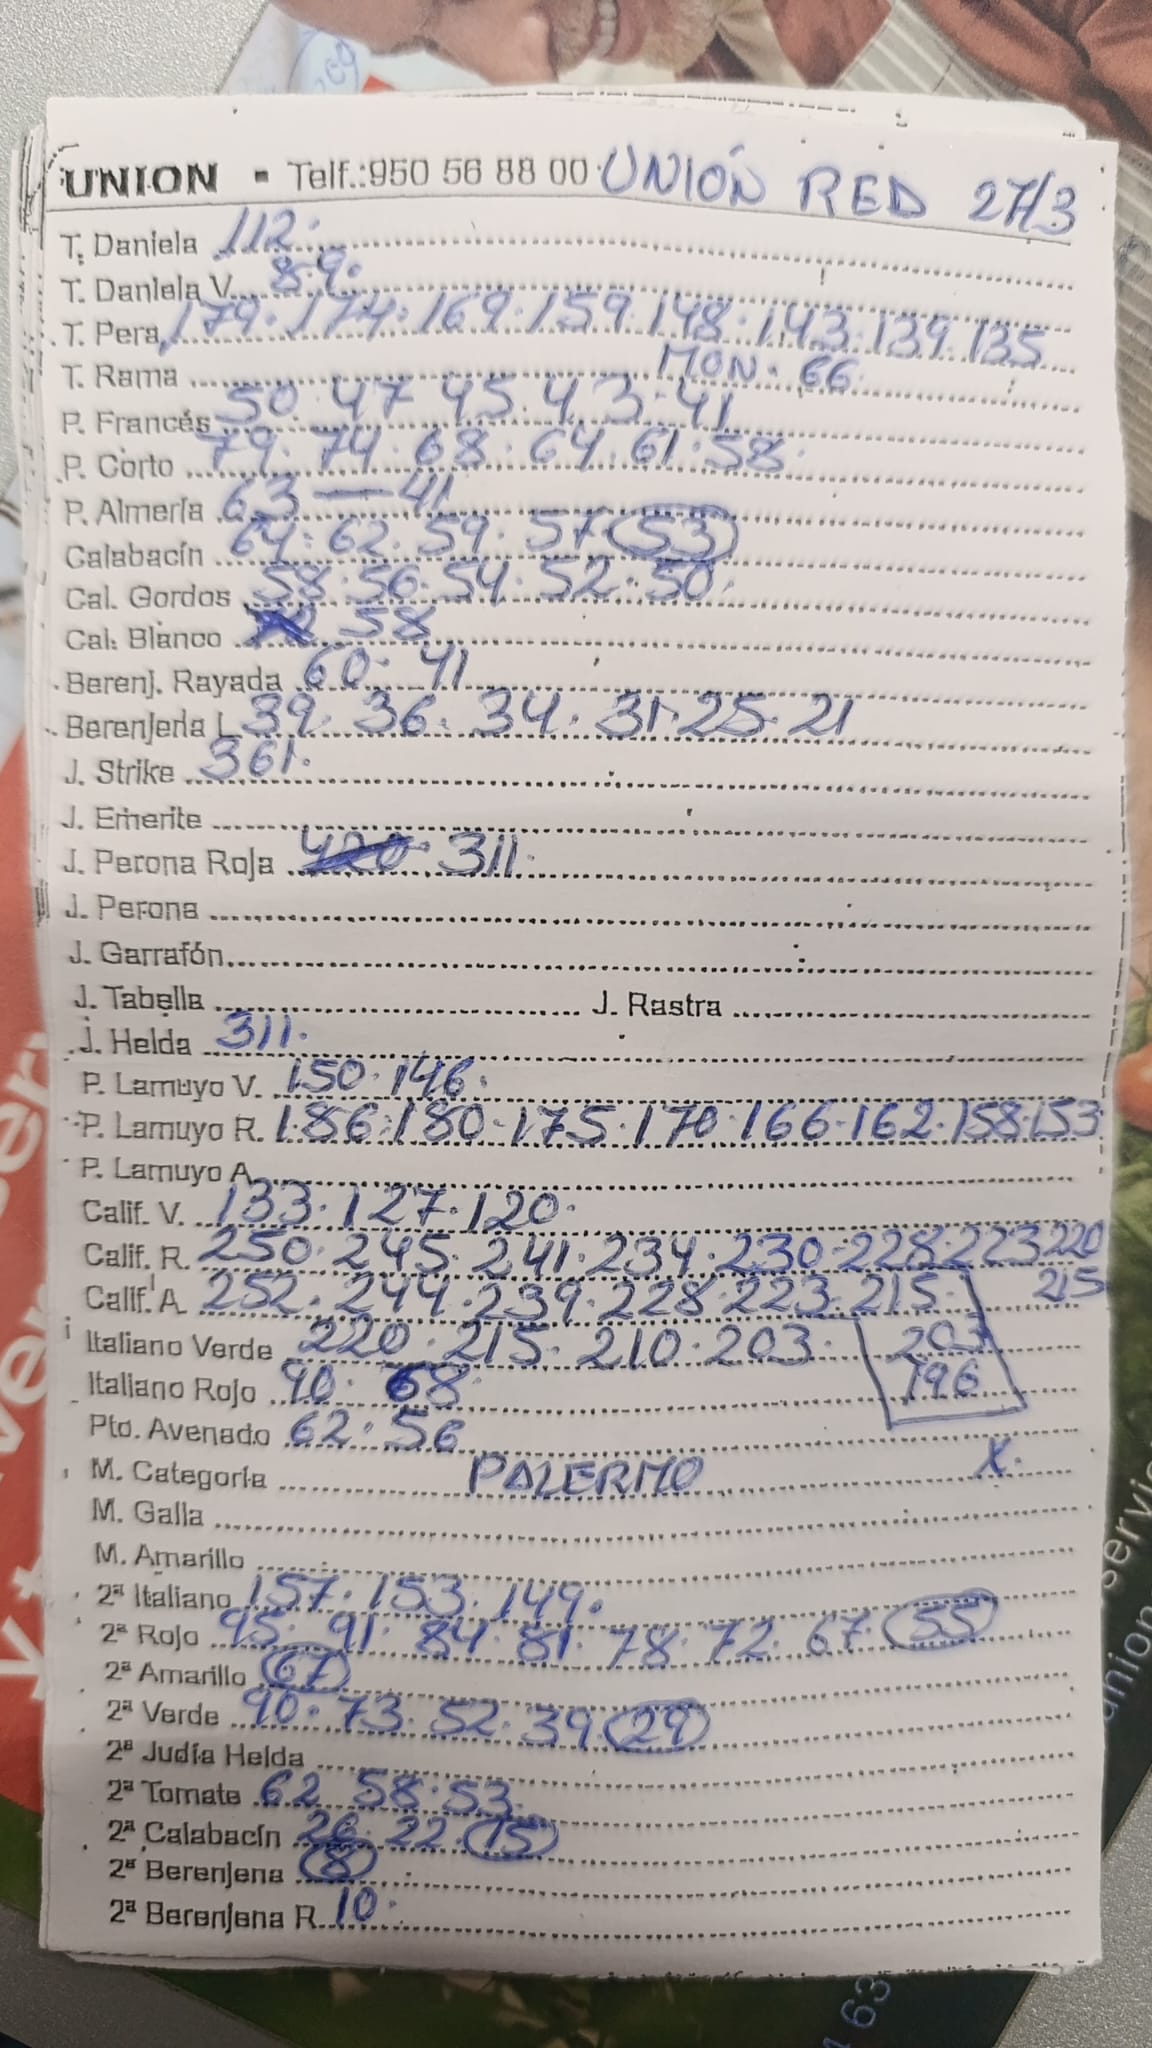 UNION - Telf.:950 56 88 00 UNIÓN RED 27/3
T. Daniela 112.
T. Daniela V. 89.
T. Pera 179. 174. 169. 159. 148. 143. 139. 135
T. Rama MON. 66.
P. Francés 50. 47 45. 43. 41
P. Corto 79. 74. 68. 64. 61. 58.
P. Almería 63 — 41
Calabacín 64. 62. 59. 57 53
Cal. Gordos 58. 56. 54. 52. 50.
Cal. Blanco 58
Berenj. Rayada 60. 41
Berenjena L 39. 36. 34. 31. 25. 21
J. Strike 361.
J. Emerite
J. Perona Roja 420. 311.
J. Perona
J. Garrafón
J. Tabella J. Rastra
J. Helda 311.
P. Lamuyo V. 150. 146.
P. Lamuyo R. 186. 180. 175. 170. 166. 162. 158. 153
P. Lamuyo A
Calif. V. 133. 127. 120.
Calif. R. 250. 245. 241. 234. 230. 228. 223 220
215
Calif. A 252. 244. 239. 228. 223. 215.
Italiano Verde 220. 215. 210. 203. 203
196
Italiano Rojo 90. 68.
Pto. Avenado 62. 56
M. Categoría PALERMO X.
M. Galla
M. Amarillo
2ª Italiano 157. 153. 149.
2ª Rojo 95. 91. 84. 81. 78. 72. 67. 55
2ª Amarillo 67
2ª Verde 90. 73. 52. 39. 29
2ª Judía Helda
2ª Tomate 62 58. 53.
2ª Calabacín 26. 22. 15
2ª Berenjena 8
2ª Berenjena R. 10.